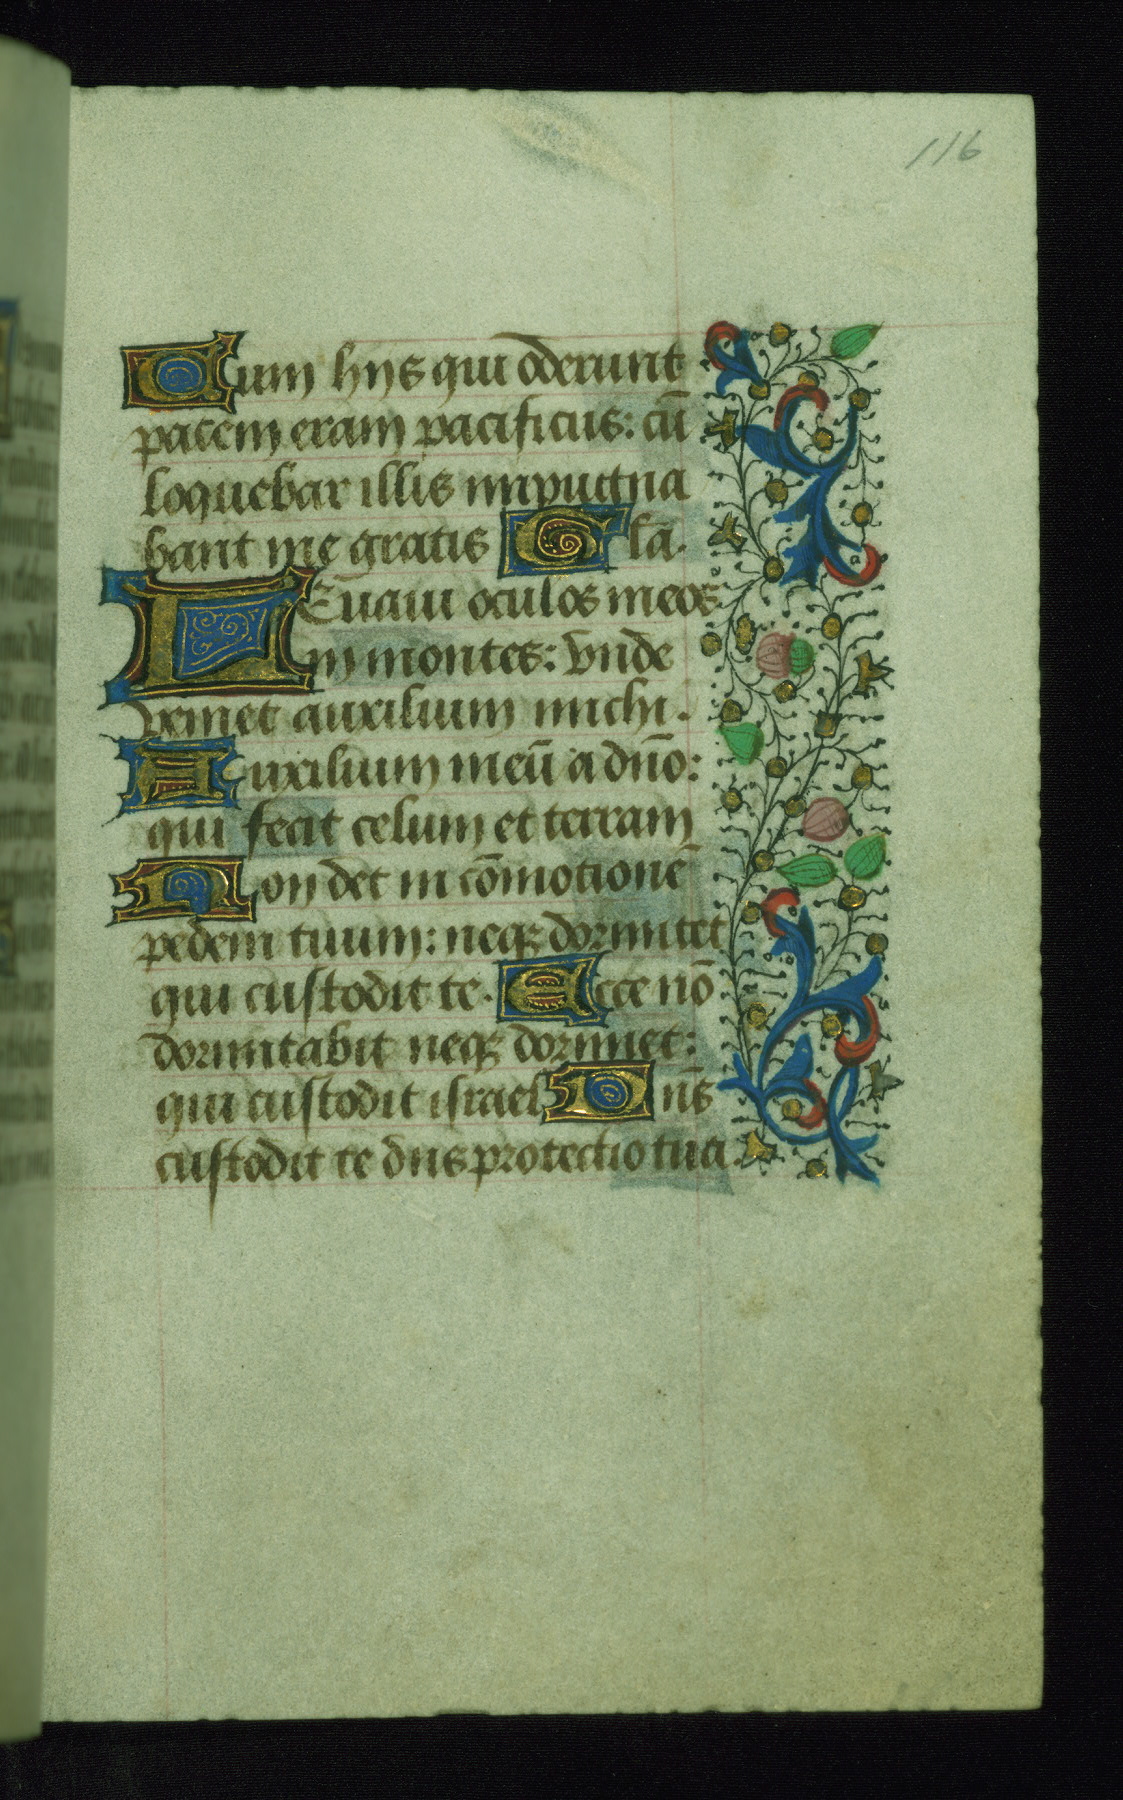 116
Cum hijs qui oderunt
pacem eram pacificus: cū
loquebar illis inpugna
bant me gratis Gła.
LEuaui oculos meos
in montes: vnde
veniet auxilium michi.
Auxilium meū a dn̄o:
qui fecit celum et terram
Non det in cōmotionē
pedem tuum: neqꝫ dormitet
qui custodit te. Ecce nō
dormitabit neqꝫ dormiet:
qui custodit israel Dn̄s
custodit te dn̄s protectio tua.